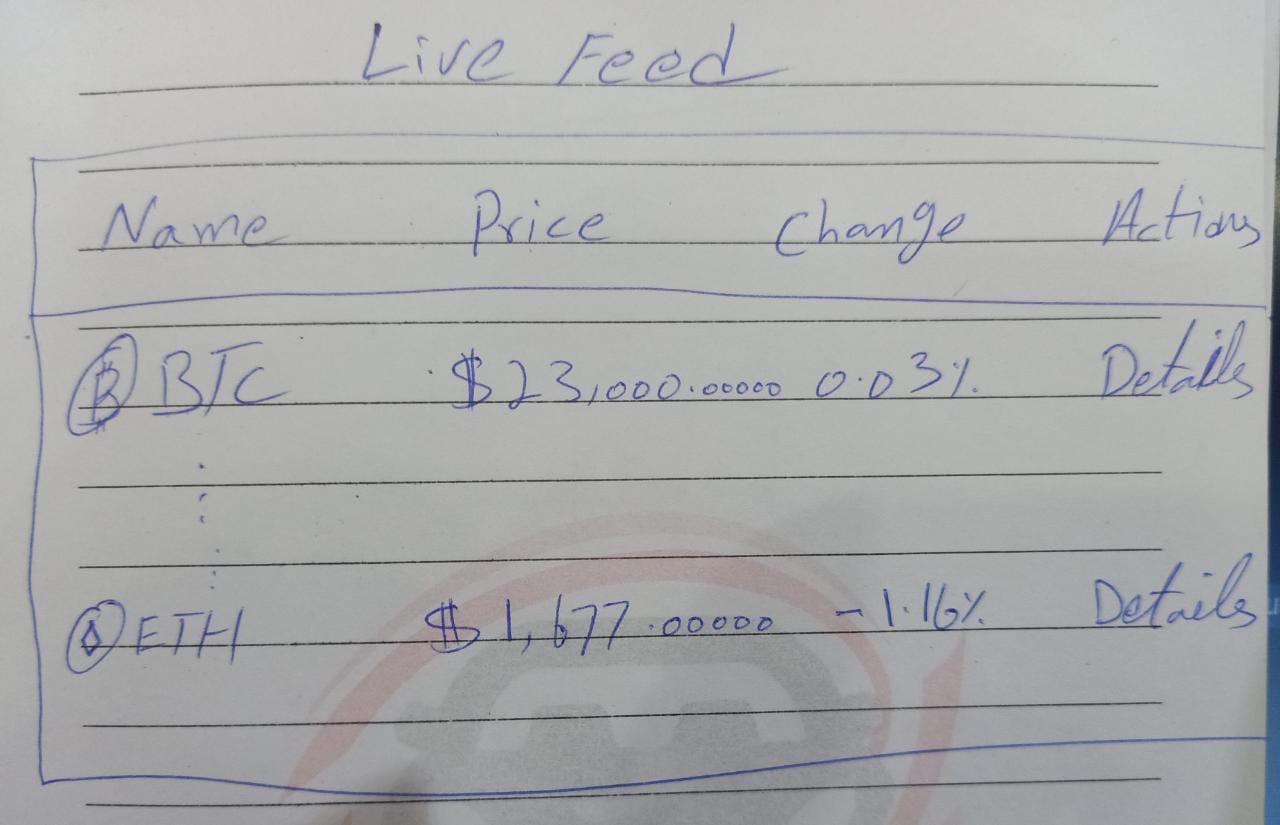 Live Feed
Name Price Change Actions
BTC $23,000.00000 0.03% Details
ETH $1,677.00000 -1.16% Details